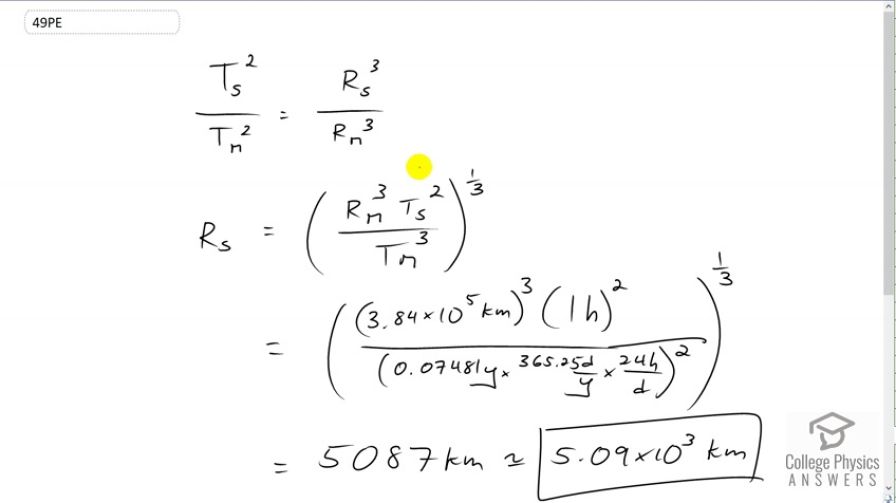 49PE
T_s^2 / T_m^2 = R_s^3 / R_m^3
R_s = ( R_m^3 T_s^2 / T_m^3 )^{1/3}
= ( (3.84×10^5 km)^3 (1h)^2 / (0.07481y × 365.25d/y × 24h/d)^2 )^{1/3}
= 5087 km ≃ 5.09×10^3 km
College Physics
ANSWERS